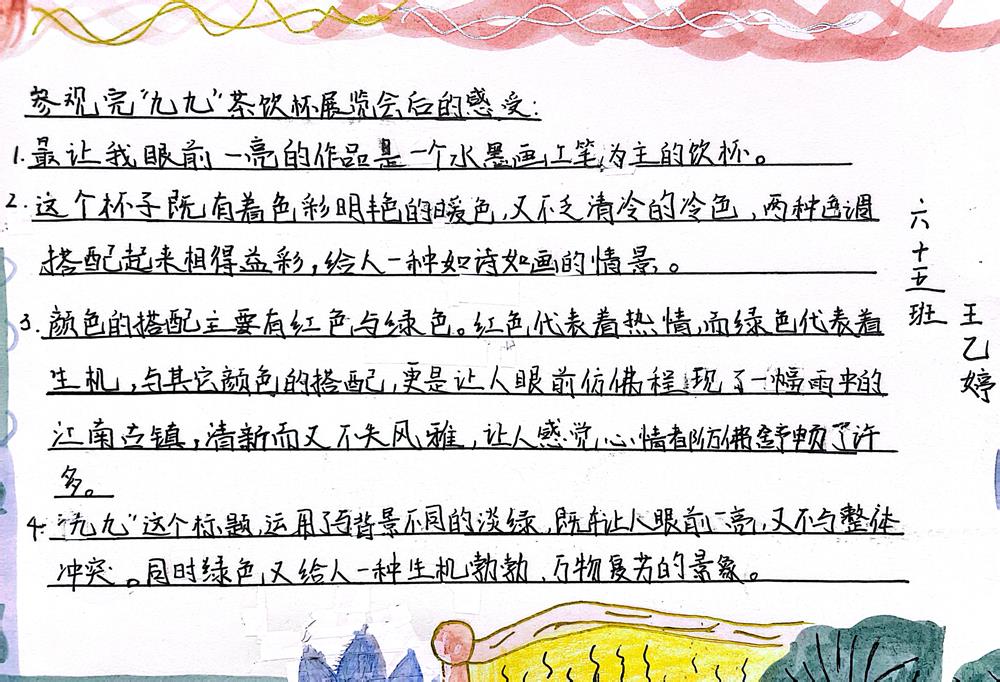 参观完“九九”茶饮杯展览会后的感受:
1.最让我眼前一亮的作品是一个水墨画工笔为主的饮杯。
2.这个杯子既有着色彩明艳的暖色,又不乏清冷的冷色,两种色调
搭配起来相得益彩,给人一种如诗如画的情景。
3.颜色的搭配主要有红色与绿色。红色代表着热情,而绿色代表着
生机,与其它颜色的搭配,更是让人眼前仿佛程现了一幅雨中的
江南古镇,清新而又不失风雅,让人感觉,心情都仿佛舒顿了许
多。
4.“九九”这个标题,运用了与背景不同的淡绿,既能让人眼前一亮,又不与整体
冲突。同时绿色又给人一种生机勃勃、万物复苏的景象。
六十五班
王乙婷